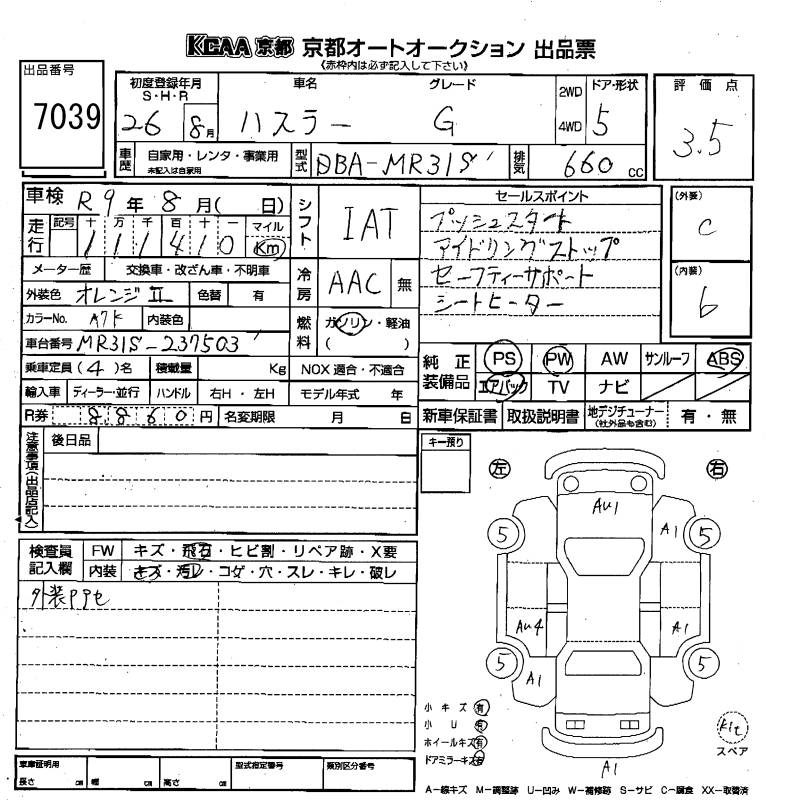 KCAA 京都 京都オートオークション 出品票
《赤枠内は必ず記入して下さい》
出品番号
7039
初度登録年月
S・H・R
26 8月
車名
ハスラー
グレード
G
2WD
4WD
ドア・形状
5
評価点
3.5
車歴
自家用・レンタ・事業用
未記入は自家用
型式
DBA-MR31S
排気
660 cc
車検 R9年8月( 日)
走行
記号 十 万 千 百 十 一 マイル
111410 Km
シフト
IAT
セールスポイント
プッシュスタート
アイドリングストップ
セーフティーサポート
シートヒーター
(外装)
C
(内装)
b
メーター歴 交換車・改ざん車・不明車
冷房
AAC 無
外装色 オレンジII 色替 有
カラーNo. A7K 内装色
燃料
ガソリン・軽油
( )
車台番号 MR31S-237503
乗車定員(4)名 積載量 Kg NOX適合・不適合
輸入車 ディーラー・並行 ハンドル 右H・左H モデル年式 年
R券 8860円 名変期限 月 日
純正装備品
PS PW AW サンルーフ ABS
エアバック TV ナビ
新車保証書 取扱説明書 地デジチューナー
(社外品も含む)
有・無
注意事項(出品店記入)
後日品
キー預り
左 右
検査員記入欄
FW キズ・飛石・ヒビ割・リペア跡・X要
内装 キズ・汚レ・コゲ・穴・スレ・キレ・破レ
AU1
5 A1 5
AU4 A1
5 A1 5
A1
小キズ 有
小U 有
ホイールキズ 有
ドアミラーキズ 有
Kit
スペア
車庫証明用
長さ cm 幅 cm 高さ cm
型式指定番号
類別区分番号
A-線キズ M-調整跡 U-凹み W-補修跡 S-サビ C-腐食 XX-取替済